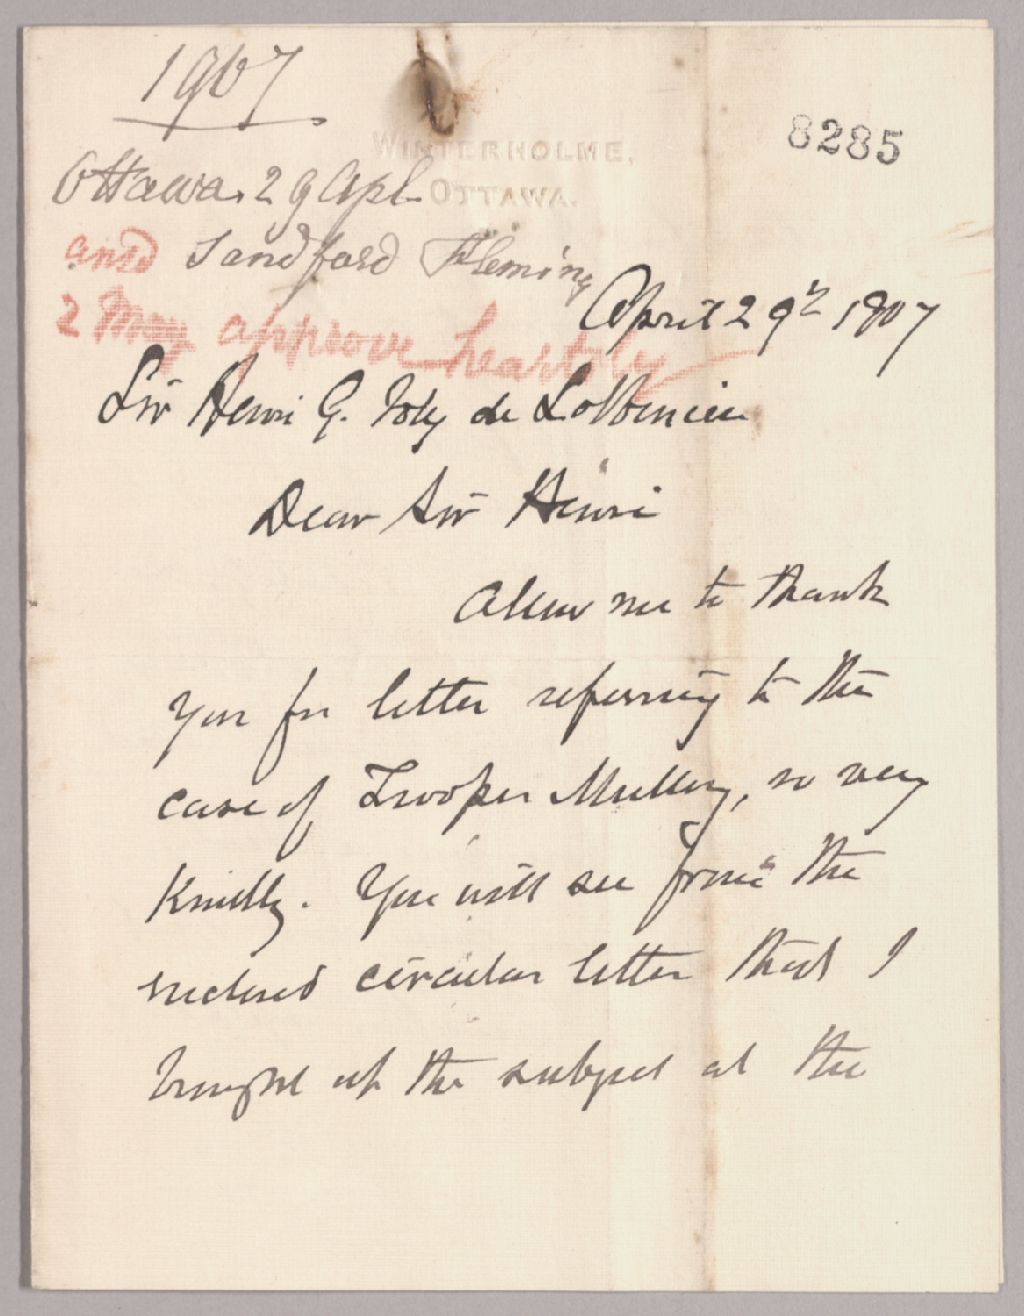 1907
8285
WINTERHOLME,
OTTAWA.
Ottawa. 29 Apl
ansd Sandford Fleming
2 May approve heartily
April 29th 1907
Sir Henri G. Joly de Lotbiniere
Dear Sir Henri
Allow me to thank
you for letter referring to the
case of Trooper Mullory, so very
kindly. You will see from the
enclosed circular letter that I
brought up the subject at the